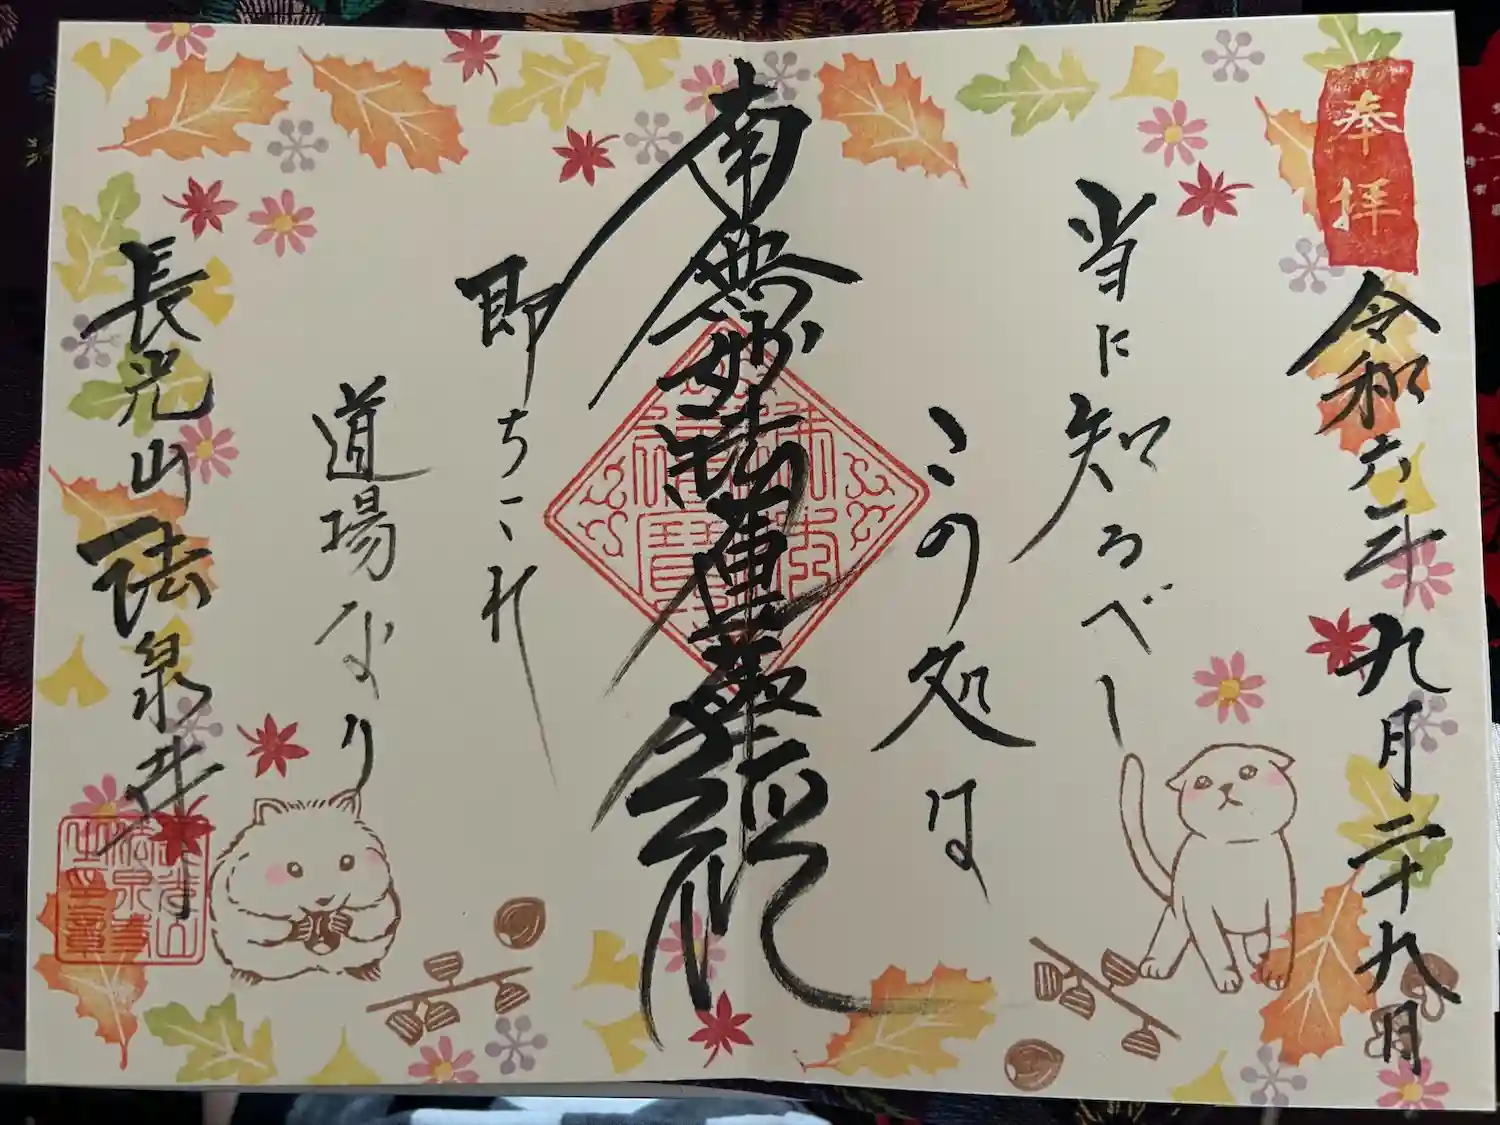 奉拝
令和六年九月二十九日
当に知るべし
この処は
南無妙法蓮華経
即ちこれ
道場なり
長光山 法泉寺